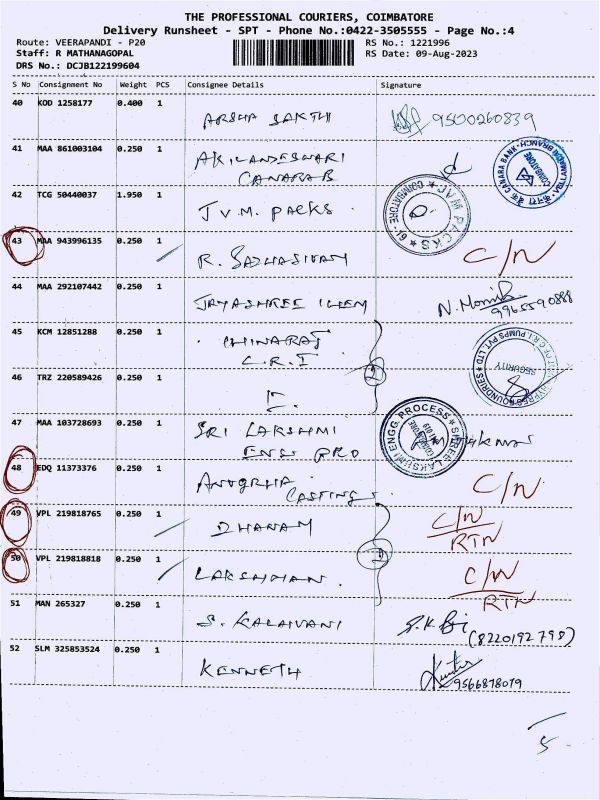 THE PROFESSIONAL COURIERS, COIMBATORE
Delivery Runsheet - SPT - Phone No.:0422-3505555 - Page No.:4
Route: VEERAPANDI - P20
Staff: R MATHANAGOPAL
DRS No.: DCJB122199604
RS No.: 1221996
RS Date: 09-Aug-2023
S No Consignment No Weight PCS Consignee Details Signature
40 KOD 1258177 0.400 1 ARSHA SAKTHI 9500260839
41 MAA 861003104 0.250 1 AKILANDESWARI
CANARA B
CANARA BANK
COIMBATORE
42 TCG 50440037 1.950 1 J.V.M. PACKS.
PACKS
COIMBATORE-19
43 MAA 943996135 0.250 1 R. SADHASIVAM C/N
44 MAA 292107442 0.250 1 JAYASHREE CHEM N.
9965590888
45 KCM 12851288 0.250 1 CHINARAJ
C.R.I
C.R.I. PUMPS PVT. LTD
FOUNDRIES
SECURITY
46 TRZ 220589426 0.250 1
2
47 MAA 103728693 0.250 1 SRI LAKSHMI
ENGG PRO
SHREE LAKSHMI ENGG. PROCESS
48 EDQ 11373376 0.250 1 ANUGRHA
CASTINGS C/N
49 VPL 219818765 0.250 1 DHANAM C/N
RTN
2
50 VPL 219818818 0.250 1 LAKSHMAN. C/N
RTN
51 MAN 265327 0.250 1 S. KALAIVANI
(8220192798)
52 SLM 325853524 0.250 1 KENNETH
9566878079
5